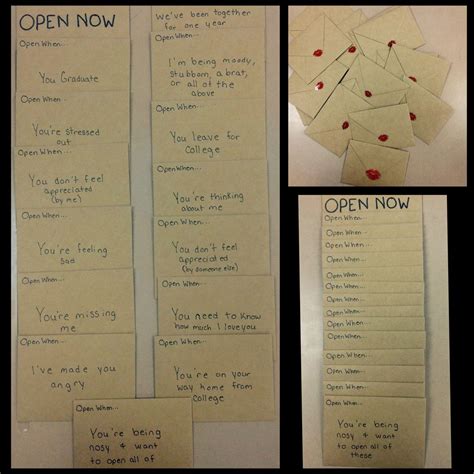 OPEN NOW
Open When...
You Graduate
Open When...
You're stressed
out
Open When...
You don't feel
appreciated
(by me)
Open When...
You're feeling
sad
Open When...
You're missing
me
Open When...
I've made you
angry
We've been together
for one year
Open When...
I'm being moody,
stubborn, a brat,
or all of the
above
Open When...
You leave for
College
Open When...
You're thinking
about me
Open When...
You don't feel
appreciated
(by someone else)
Open When...
You need to know
how much I love you
Open When...
You're on your
way home from
College
Open When...
You're being
nosy & want
to open all of
OPEN NOW
Open When...
Open When...
Open When...
Open When...
Open When...
Open When...
Open When...
Open When...
Open When...
Open When...
Open When...
Open When...
Open When...
You're being
nosy & want
to open all of
these